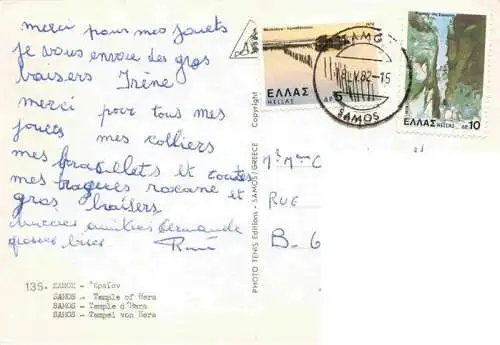 merci pour mes jouets
je vous envoie des gros
baisers Irène
merci pour tous mes
jouets mes colliers
mes brasellets et toutes
mes bagues roxane et
gros baisers
amitiés
grosses bises René
135. ΣΑΜΟΣ - Ἡραῖον
SAMOS - Temple of Hera
SAMOS - Temple d'Hera
SAMOS - Tempel von Hera
PHOTO TENIS Editions - SAMOS/GREECE Copyright
ΕΛΛΑΣ
HELLAS ΔΡ 5
SAMOS
82-15
ΣΑΜΟΣ
ΕΛΛΑΣ
HELLAS ΔΡ 10
Mr Mme C
RUE
B-6